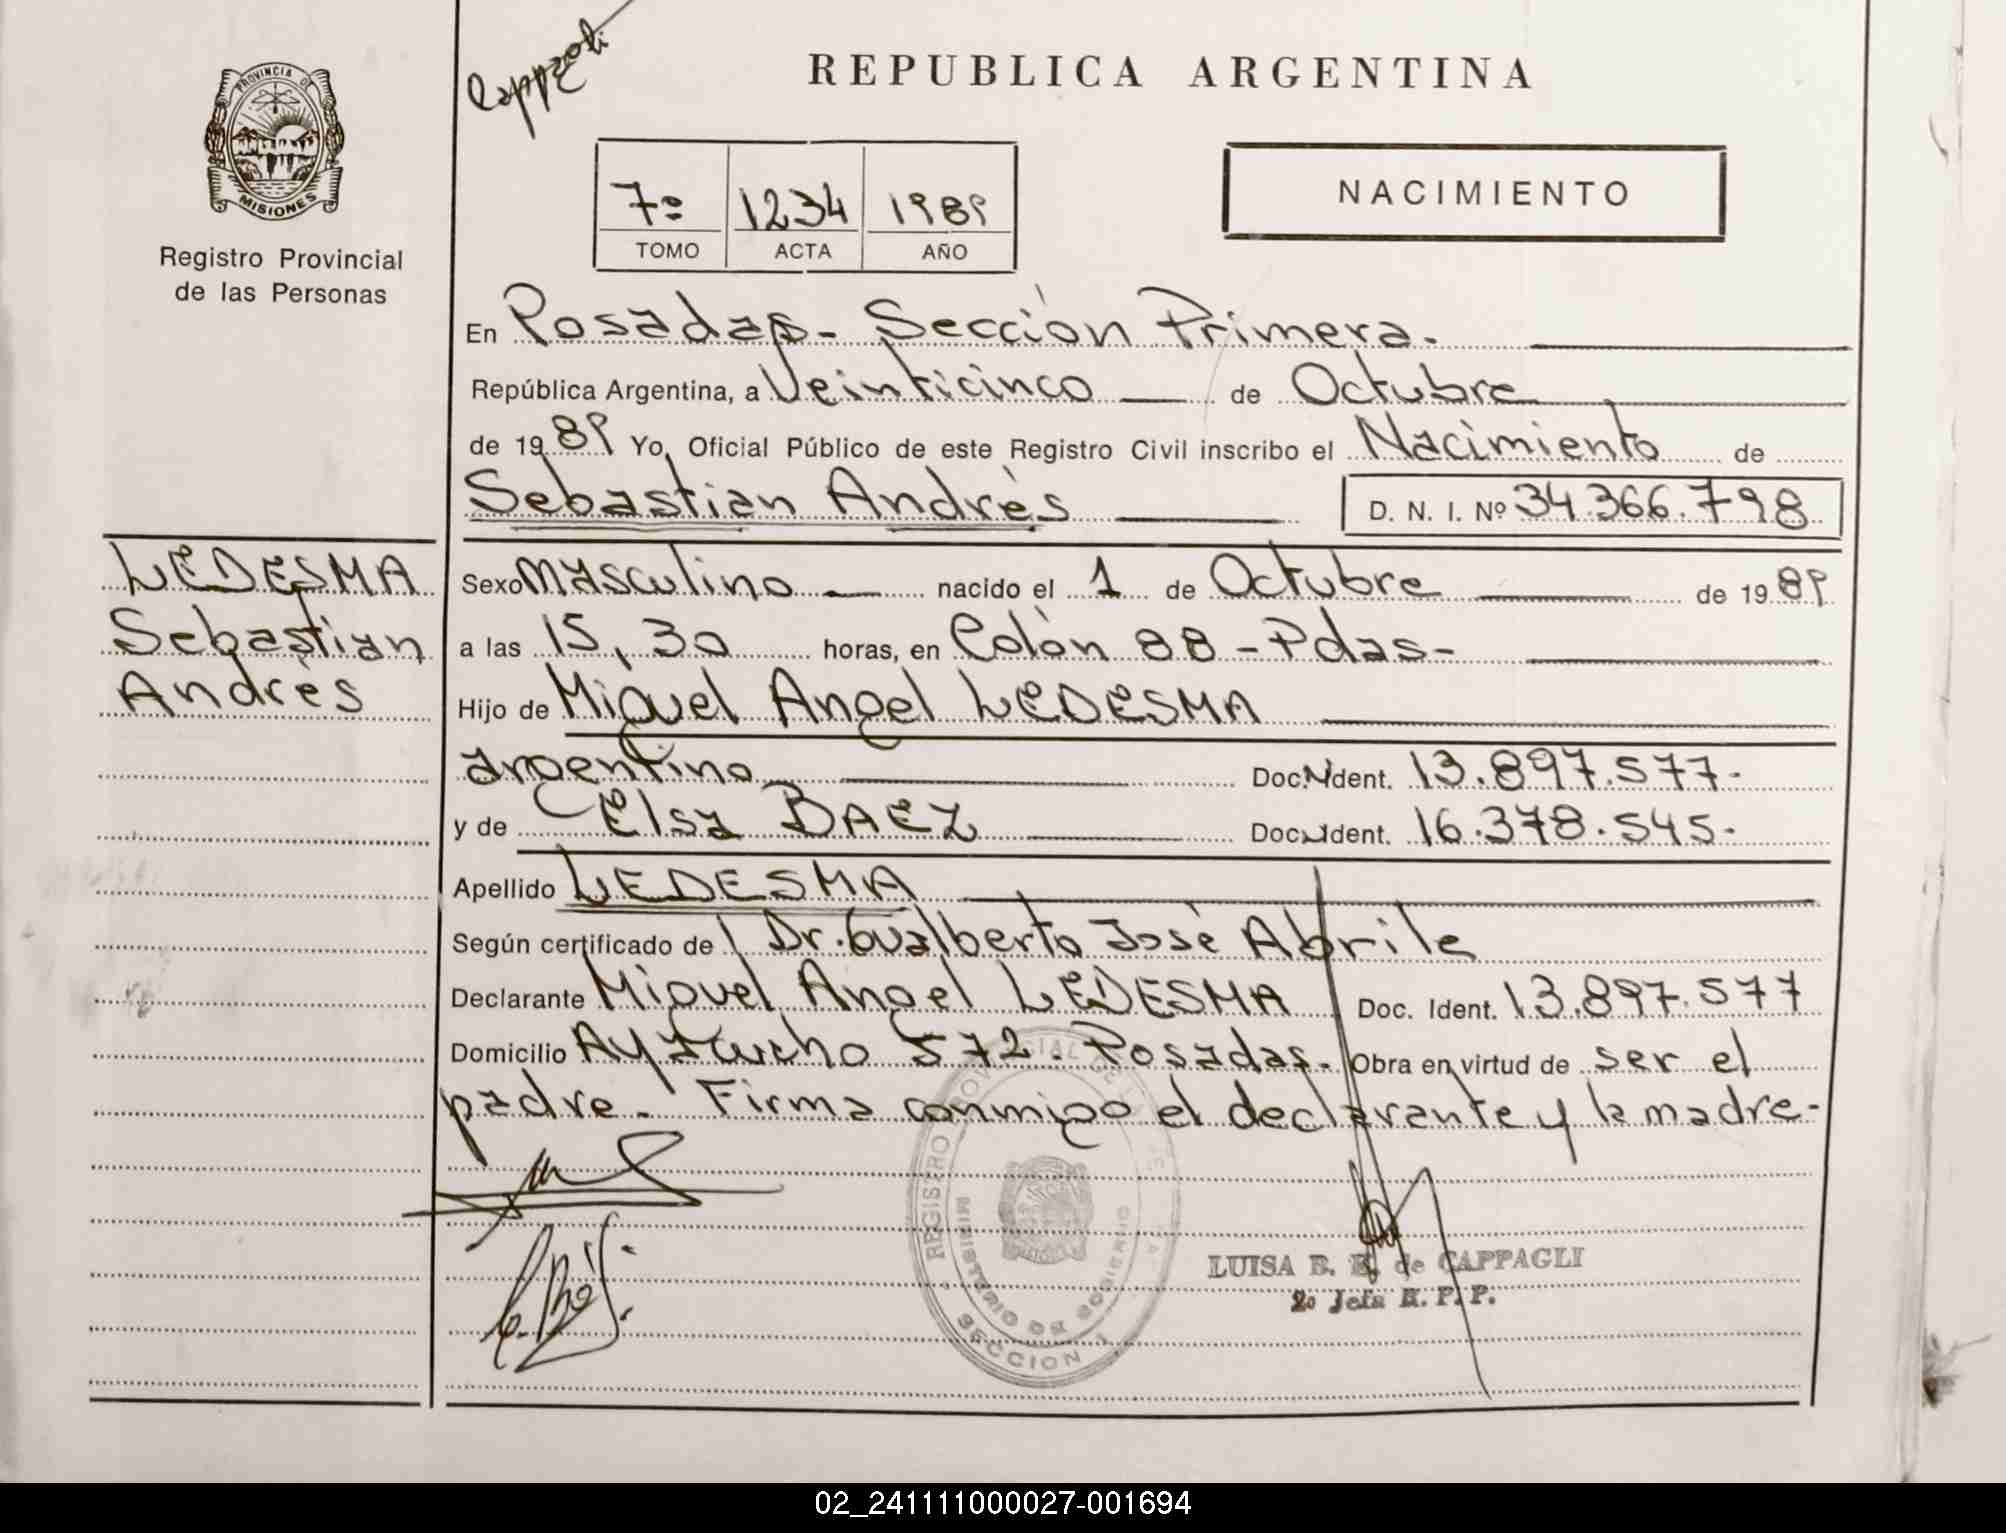 Cappagli
REPUBLICA ARGENTINA
PROVINCIA DE
MISIONES
Registro Provincial
de las Personas
7º 1234 1989
TOMO ACTA AÑO
NACIMIENTO
En Posadas - Sección Primera.
República Argentina, a Veinticinco de Octubre
de 1989 Yo, Oficial Público de este Registro Civil inscribo el Nacimiento de
Sebastian Andrès D. N. I. Nº 34.366.798
LEDESMA
Sebastian
Andrès
Sexo Masculino nacido el 1 de Octubre de 1989
a las 15,30 horas, en Colòn 88 - Pdas-
Hijo de Miguel Angel LEDESMA
argentino Doc. Ident. 13.897.577-
y de Elsa BAEZ Doc. Ident. 16.378.545-
Apellido LEDESMA
Según certificado de Dr. Gualberto Josè Abrile
Declarante Miguel Angel LEDESMA Doc. Ident. 13.897.577
Domicilio Ayacucho 572 - Posadas. Obra en virtud de ser el
padre. Firma conmigo el declarante y la madre-
REGISTRO PROVINCIAL DE
MINISTERIO DE GOBIERNO
SECCION 1
LUISA B. E. de CAPPAGLI
2º Jefa R. P. P.
02_241111000027-001694